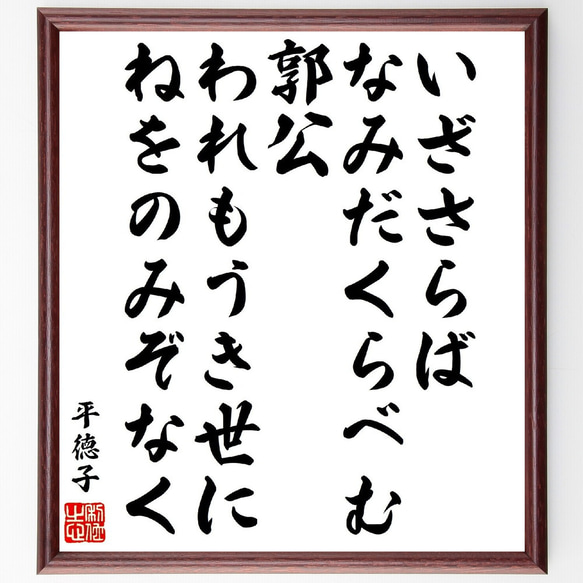 いざさらば
なみだくらべむ
郭公
われもうき世に
ねをのみぞなく
平徳子